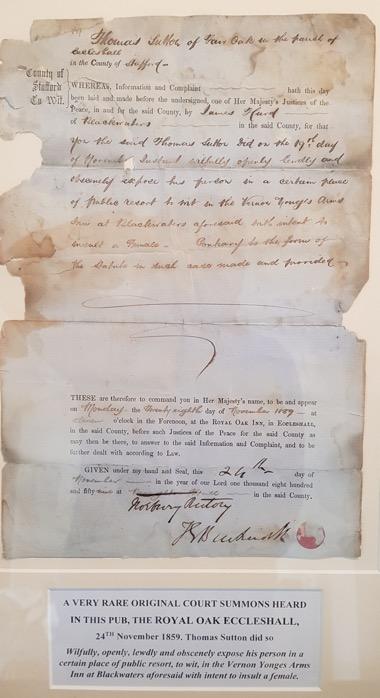 Thomas Sutton of Fair Oak in the parish of
Eccleshall
in the County of Stafford -
County of
Stafford
To Wit.
WHEREAS, Information and Complaint hath this day
been laid and made before the undersigned, one of Her Majesty's Justices of the
Peace, in and for the said County, by James Hurd
of Blackwaters in the said County, for that
you the said Thomas Sutton did on the 19th day
of November Instant wilfully openly lewdly and
obscenely expose his person in a certain place
of public resort to wit in the Vernon Yonges Arms
Inn at Blackwaters aforesaid with intent to
insult a Female - Contrary to the form of
the Statute in such case made and provided
THESE are therefore to command you in Her Majesty's name, to be and appear
on Monday the Twenty eighth day of November 1859 - at
eleven o'clock in the Forenoon, at the ROYAL OAK INN, in ECCLESHALL,
in the said County, before such Justices of the Peace for the said County as
may then be there, to answer to the said Information and Complaint, and to be
further dealt with according to Law.
GIVEN under my hand and Seal, this 24th day of
November in the year of our Lord one thousand eight hundred
and fifty nine at in the said County.
Norbury Rectory
A VERY RARE ORIGINAL COURT SUMMONS HEARD
IN THIS PUB, THE ROYAL OAK ECCLESHALL,
24TH November 1859. Thomas Sutton did so
Wilfully, openly, lewdly and obscenely expose his person in a
certain place of public resort, to wit, in the Vernon Yonges Arms
Inn at Blackwaters aforesaid with intent to insult a female.